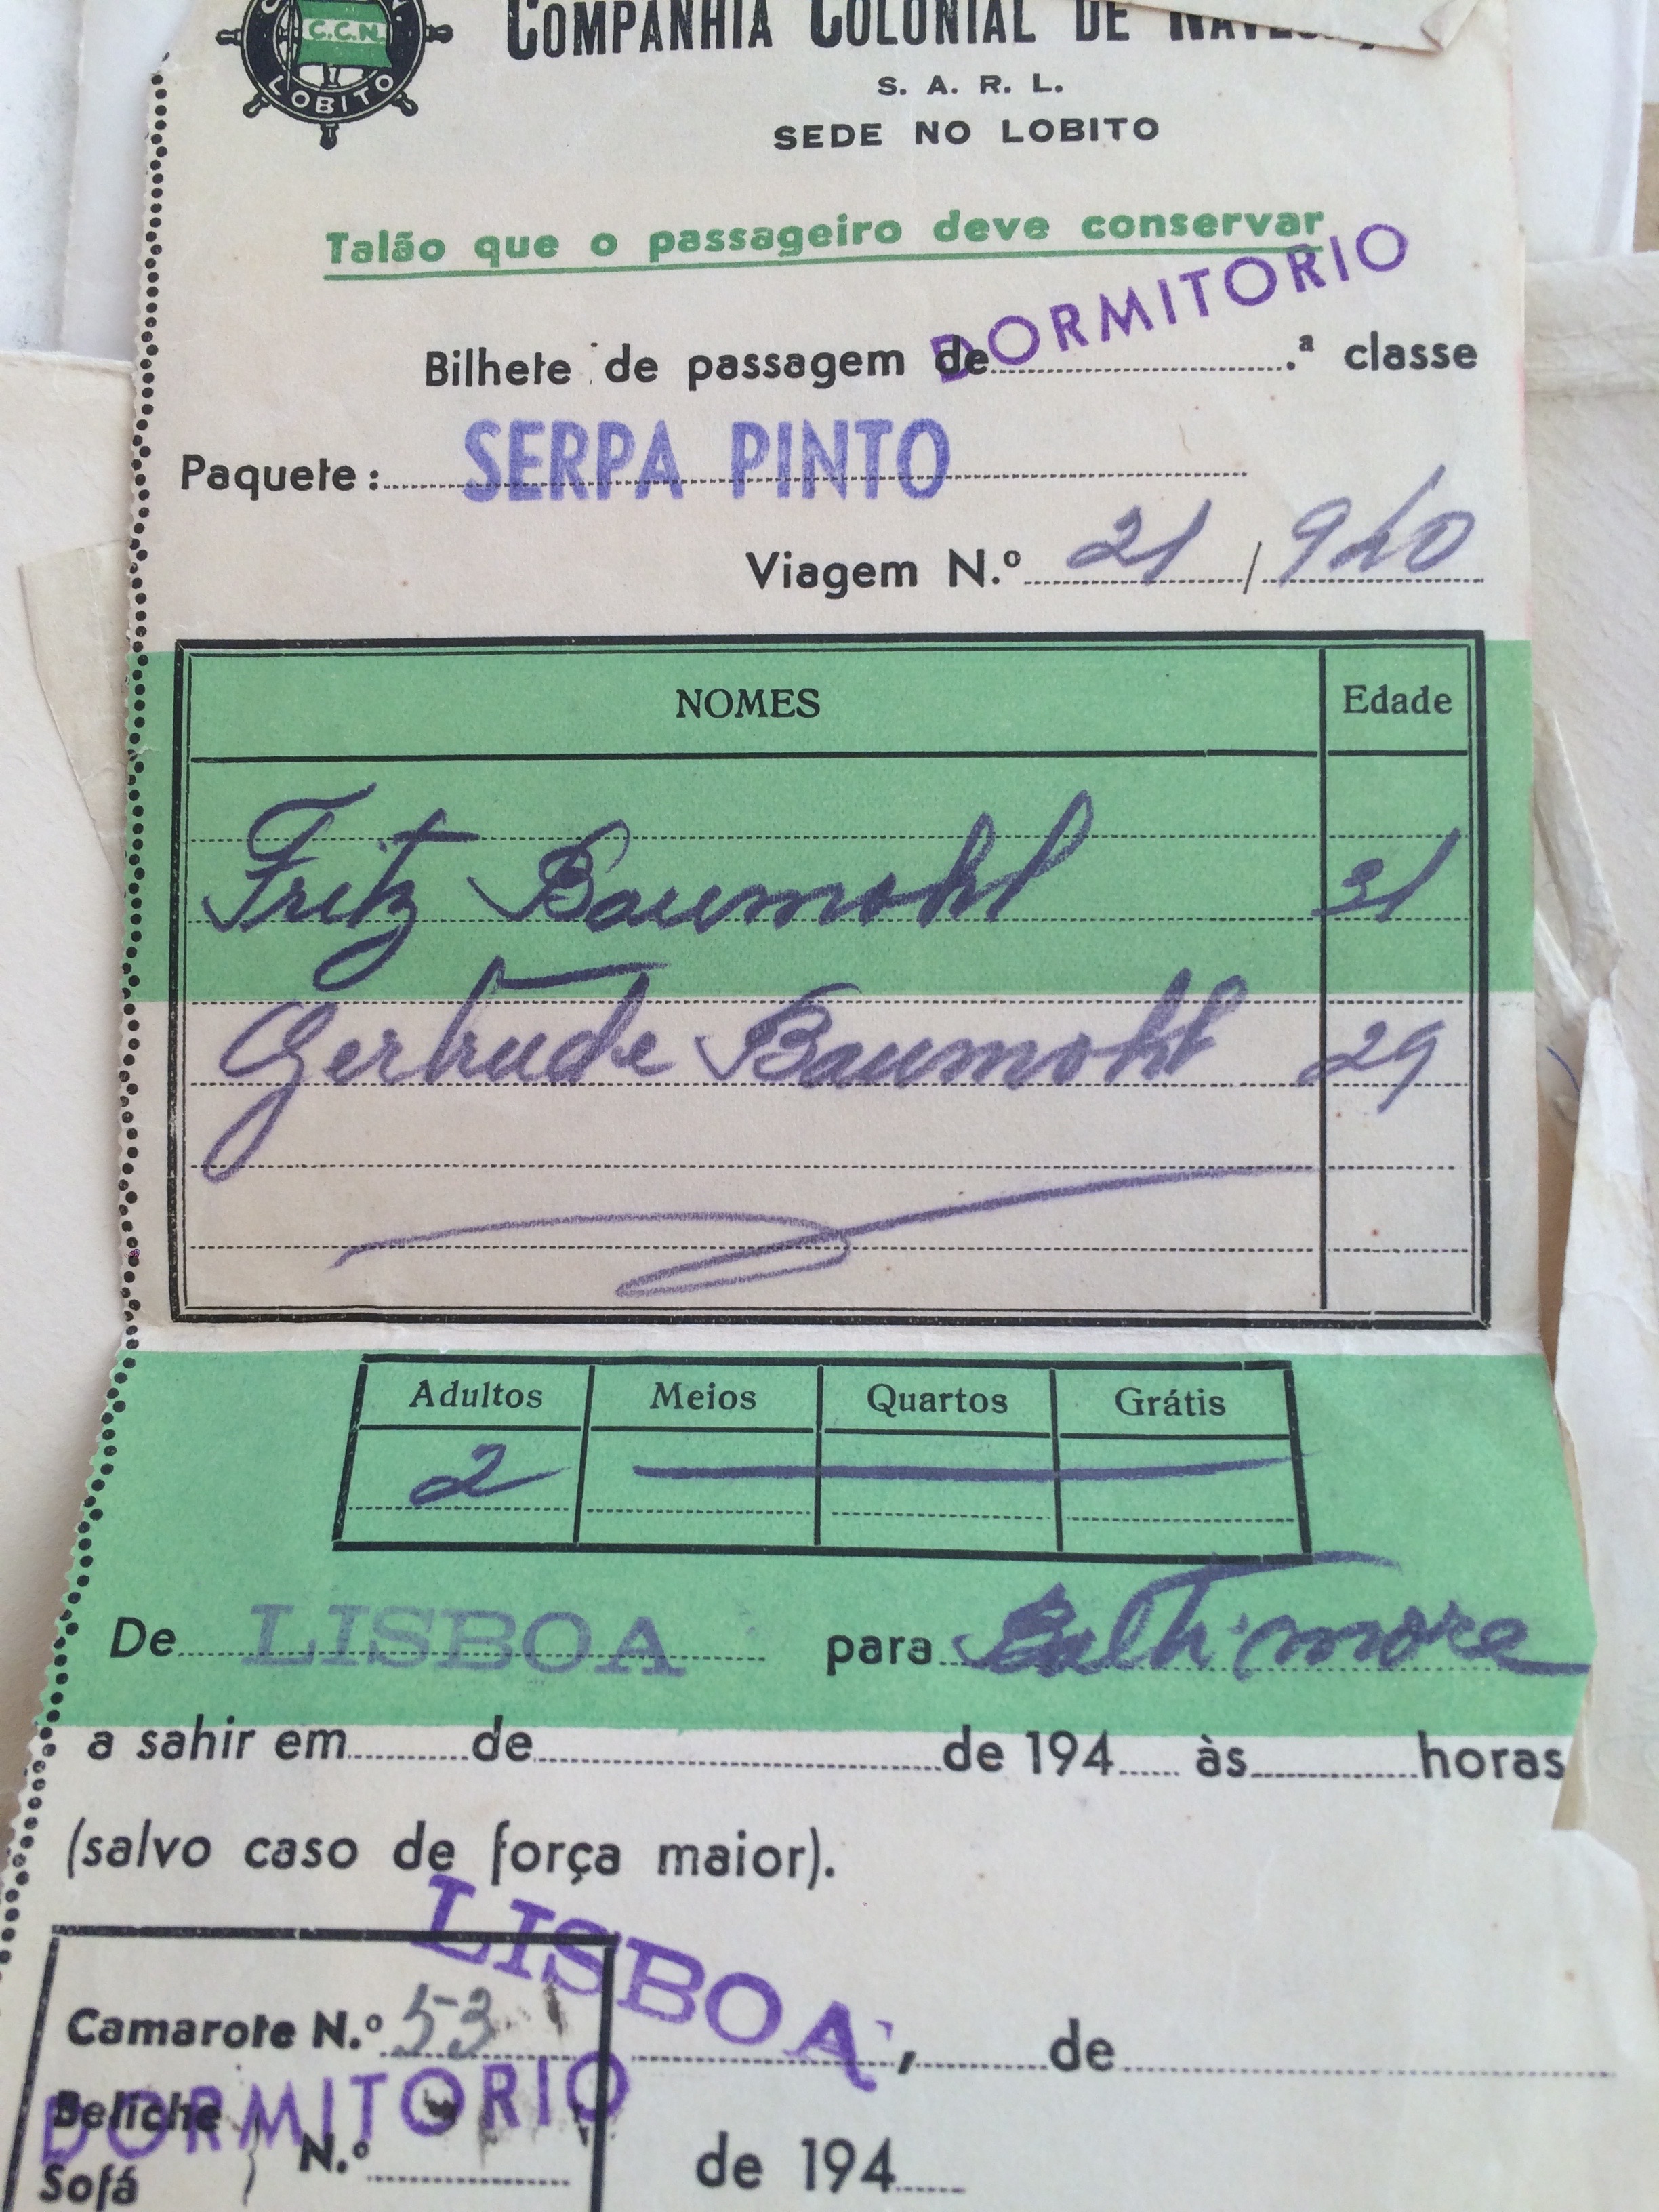 C.C.N.
LOBITO
COMPANHIA COLONIAL DE
S. A. R. L.
SEDE NO LOBITO
Talão que o passageiro deve conservar
DORMITORIO
Bilhete de passagem de ............ .ª classe
Paquete: SERPA PINTO
Viagem N.º 21 / 940
NOMES Edade
Fritz Baumohl 31
Gertrude Baumohl 29
Adultos Meios Quartos Grátis
2
De LISBOA para Balthimore
a sahir em ........ de ............ de 194 .... às ........ horas
(salvo caso de força maior).
LISBOA
Camarote N.º 53 , ........ de ............
DORMITORIO
Beliche
Sofá N.º ........ de 194 ....